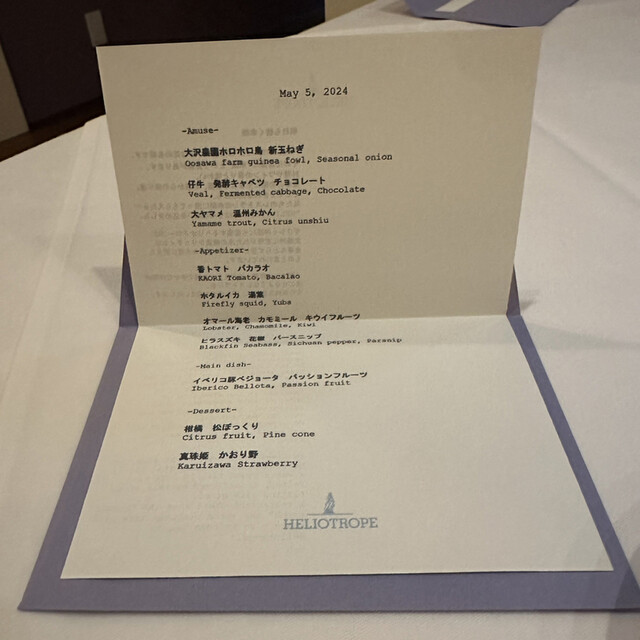 May 5, 2024
-Amuse-
大沢農園ホロホロ鳥 新玉ねぎ
Oosawa farm guinea fowl, Seasonal onion
仔牛 発酵キャベツ チョコレート
Veal, Fermented cabbage, Chocolate
大ヤマメ 温州みかん
Yamame trout, Citrus unshiu
-Appetizer-
香トマト バカラオ
KAORI Tomato, Bacalao
ホタルイカ 湯葉
Firefly squid, Yuba
オマール海老 カモミール キウイフルーツ
Lobster, Chamomile, Kiwi
ヒラスズキ 花椒 パースニップ
Blackfin Seabass, Sichuan pepper, Parsnip
-Main dish-
イベリコ豚ベジョータ パッションフルーツ
Iberico Bellota, Passion fruit
-Dessert-
柑橘 松ぼっくり
Citrus fruit, Pine cone
真珠姫 かおり野
Karuizawa Strawberry
HELIOTROPE